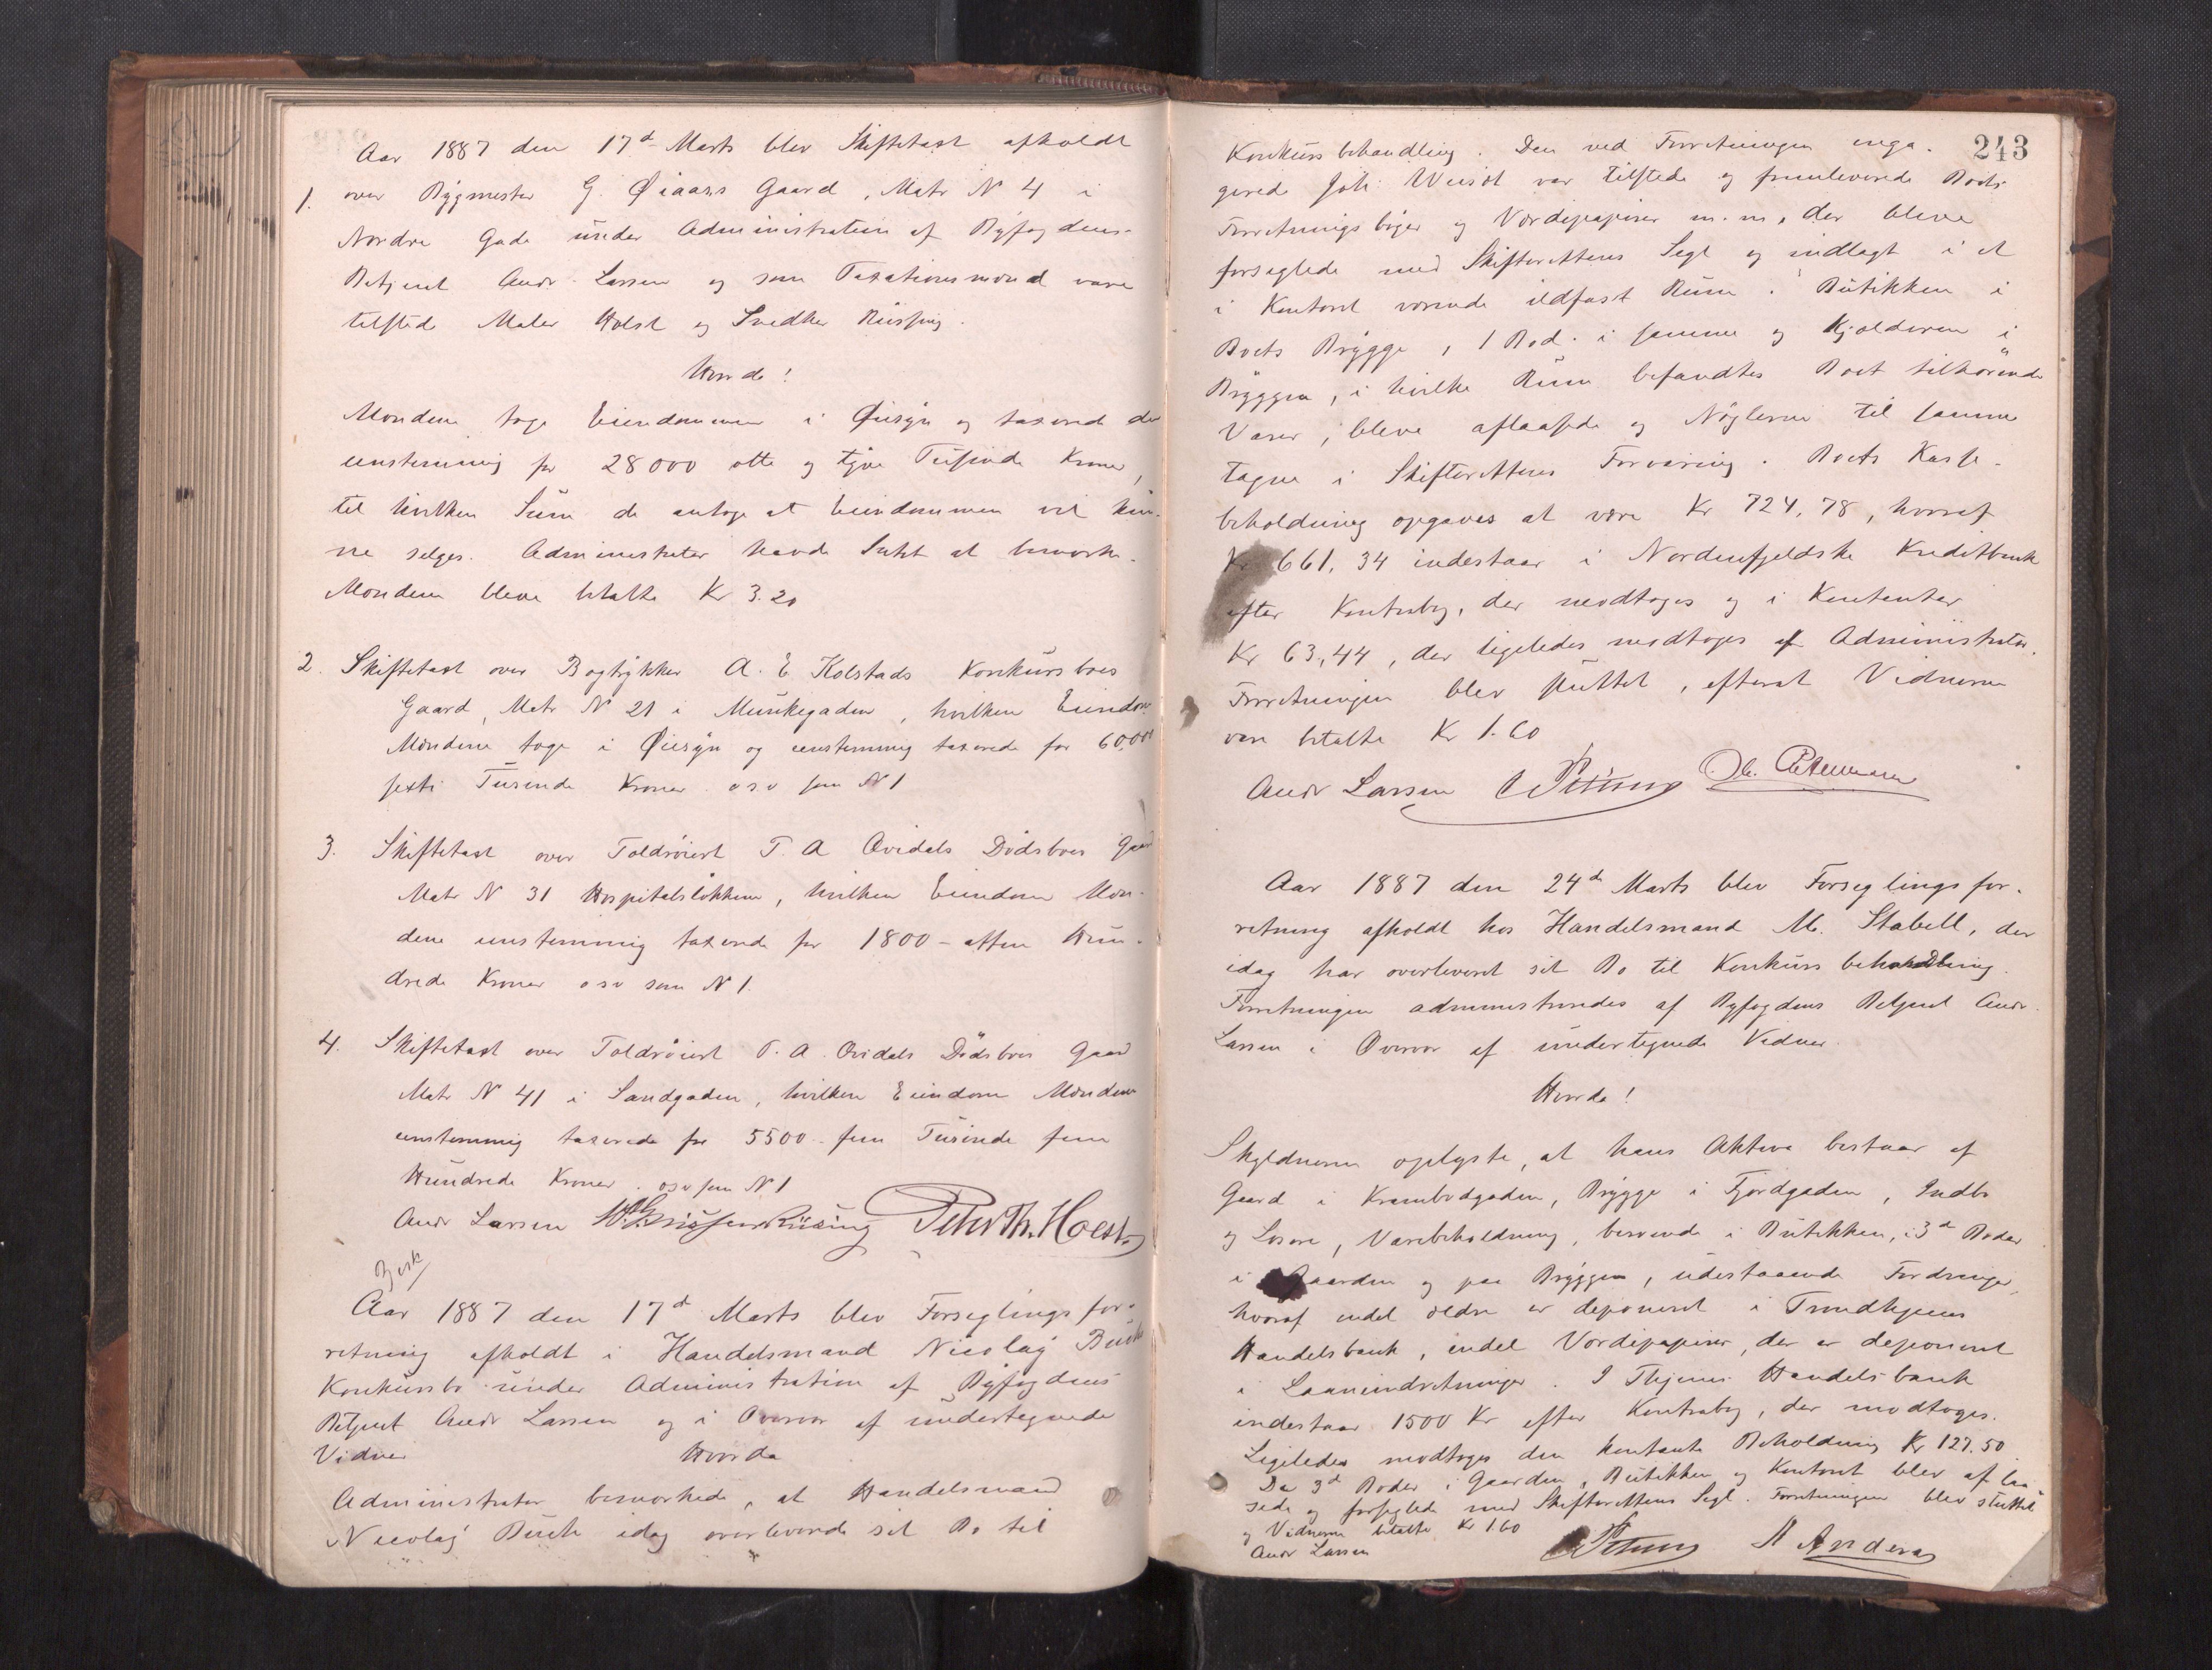 Aar 1887 den 17d Marts blev Skiftetaxt afholdt
1. over Bygmester G. Øiaass Gaard, Matr N 4 i
Nordre Gade under Administration af Byfogdens
Betjent Andr. Larsen og som Taxationsmænd vare
tilstede Maler Holst og Snedker Rüssing.
Hvorda!
Mændene toge Eiendommen i Øiesyn og taxerede den
eenstemmig for 28000 otte og tyve Tusinde Kroner,
til hvilken Sum de antoge at Eiendommen vil kun-
ne selges. Administrator havde Intet at bemærke.
Mændene bleve betalte Kr 3.20
2. Skiftetaxt over Bogtrykker A. E Kolstads Konkursboes
Gaard, Matr N 21 i Munkegaden, hvilken Eiendom
Mændene toge i Øiesyn og eenstemmig taxerede for 60,000
sexti Tusende Kroner osv som N 1
3. Skiftetaxt over Toldrørert T. A Qvidals Dödsboes Gaard
Matr N 31 Hospitalsløkken, hvilken Eiendom Mæn-
dene eenstemmig taxerede for 1800 - atten Hun-
drede Kroner osv som N 1.
4. Skiftetaxt over Toldrørert T. A. Qvidals Dödsboes Gaard
Matr N 41 i Sandgaden, hvilken Eiendom Mændene
eenstemmig taxerede for 5500 - fem Tusinde fem
Hundrede Kroner. osv som N 1
Andr Larsen Rüsing Peter Th. Holst
Besk
Aar 1887 den 17d Marts blev Forseglingsfor-
retning afholdt i Handelsmand Nicolay Buck
Konkursbo under Administration af Byfogdens
Betjent Andr Larsen og i Overvær af undertegnede
Vidner Hvorda
Administrator bemærkede, at Handelsmand
Nicolay Buck idag overleverede sit Bo til
243
Konkursbehandling. Den ved Forretningen enga-
gerede Joh. var tilstede og fremleverede Boets
Forretningsbøger og Værdipapirer m.m., der bleve
forseglede med Skifterettens Segl og indlagt i et
i Kontoret værende ildfast Rum. Butikken i
Boets Brygge, 1 Bod i samme og Kjælderen i
Bryggen, i hvilke Rum befandtes Boet tilhørende
Varer, bleve aflaasede og Nøglerne til samme
tagne i Skifterettens Forvaring. Boets Kasse-
beholdning opgaves at være Kr 724,78, hvoraf
Kr 661,34 indestaar i Nordenfjeldske Kreditbank
efter Kontrabog, der modtoges og i Kontanter
Kr 63,44, der ligeledes modtoges af Administrator.
Forretningen blev sluttet, efterat Vidnerne
vare betalte Kr 1.60
Andr Larsen
Aar 1887 den 24d Marts blev Forseglingsfor-
retning afholdt hos Handelsmand M. Stabell, der
idag har overleveret sit Bo til Konkursbehandling.
Forretningen administreredes af Byfogdens Betjent Andr.
Larsen i Overvær af undertegnede Vidner.
Hvorda!
Skyldneren oplyste, at hans Aktiva bestaar af
Gaard i Krambodgaden, Brygge i Fjordgaden, Indbo
og Løsøre, Varebeholdning, beroende i Butikken, i 3d Boder
i Gaarden og paa Bryggen, udestaaende Fordringer,
hvoraf endel ældre er deponeret i Trondhjems
Handelsbank, endel Værdipapirer, der er deponeret
i Laaneindretninger. I Thjems Handelsbank
indestaar 1500 Kr efter Kontrabog, der modtoges.
Ligeledes modtoges den kontante Beholdning Kr 127.50
De 3d Boder i Gaarden, Butikken og Kontoret blev aflaa-
sede og forseglede med Skifterettens Segl. Forretningen blev sluttet
og Vidnerne betalte Kr 1.60
Andr Larsen